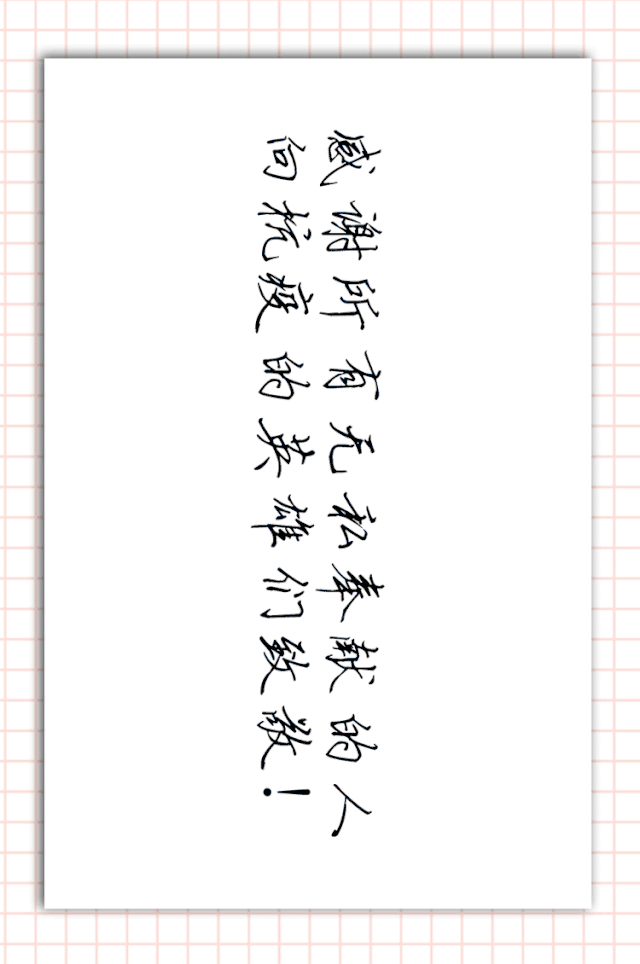 感谢所有无私奉献的人
向抗疫的英雄们致敬!